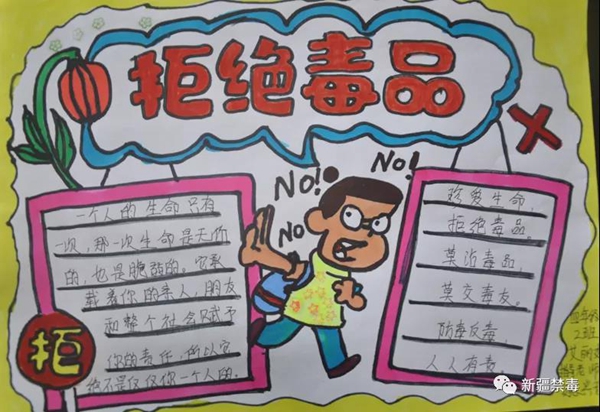 拒绝毒品
No!
No!
No
一个人的生命只有
一次,那一次生命是无价
的,也是脆弱的。它承
载着你的亲人,朋友
和整个社会赋予
你的责任,所以它
绝不是仅仅你一个人的.
拒
珍爱生命,
拒绝毒品。
莫沾毒品,
莫交毒友。
防毒反毒,
人人有责
2班
新疆禁毒